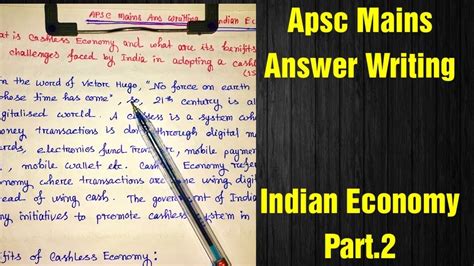 APSC Mains Ans writing Indian Ec
at is Cashless Economy and what are its benifits
challenges faced by India in adopting a cash
(15
n the word of Victor Hugo, "No force on earth
hose time has come", so, 21th century is al
igitalised world. A cashless is a system whe
oney transactions is done through digital m
erds, electronics fund Transfer, mobile paymen
, mobile wallet etc. Cash Economy refer
onomy where transactions are done using digit
ead of using cash. The government of India
ny initiatives to promote cashless system in
fits of Cashless Economy:
Apsc Mains
Answer Writing
Indian Economy
Part.2